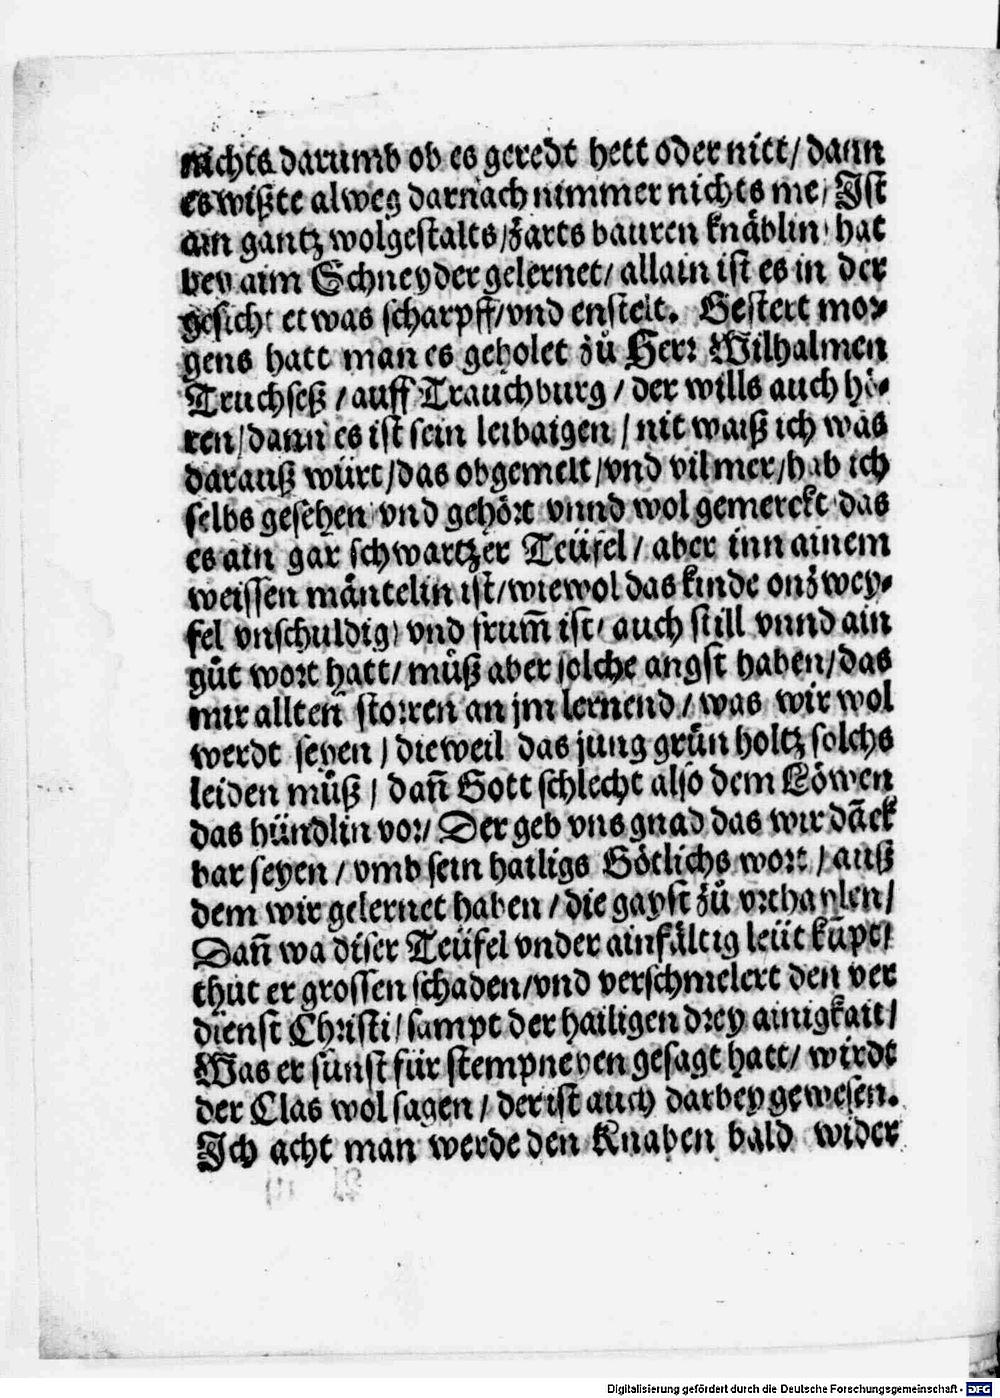 nichts darumb ob es geredt hett oder nitt / dann
es wißte alweg darnach nimmer nichts me / Ist
ain gantz wolgestalts / zarts bauren knäblin / hat
bey aim Schneyder gelernet / allain ist es in der
gesicht etwas scharpff / vnd enstelt. Gestert mor⸗
gens hatt man es geholet zů Herr Wilhalmen
Truchseß / auff Trauchburg / der wills auch hö⸗
ren / dann es ist sein leibaigen / nit waiß ich was
darauß würt / das obgemelt / vnd vil mer / hab ich
selbs gesehen vnd gehört vnnd wol gemerckt das
es ain gar schwartzer Teüfel / aber inn ainem
weissen mäntelin ist / wiewol das kinde onzwey⸗
fel vnschuldig / vnd frum̃ ist / auch still vnnd ain
gůt wort hatt / můß aber solche angst haben / das
mir allten storren an jm lernend / was wir wol
werdt seyen / dieweil das jung grün holtz solchs
leiden můß / dañ Gott schlecht also dem Löwen
das hündlin vor / Der geb vns gnad das wir dãck
bar seyen / vmb sein hailigs Götlichs wort / auß
dem wir gelernet haben / die gayst zů vrthaylen /
Dañ wa diser Teüfel vnder ainfältig leüt kũpt /
thůt er grossen schaden / vnd verschmelert den ver
dienst Christi / sampt der hailigen drey ainigkait /
Was er sunst für stempneyen gesagt hatt / wirdt
der Clas wol sagen / der ist auch darbey gewesen.
Ich acht man werde den Knaben bald wider
Digitalisierung gefördert durch die Deutsche Forschungsgemeinschaft - DFG